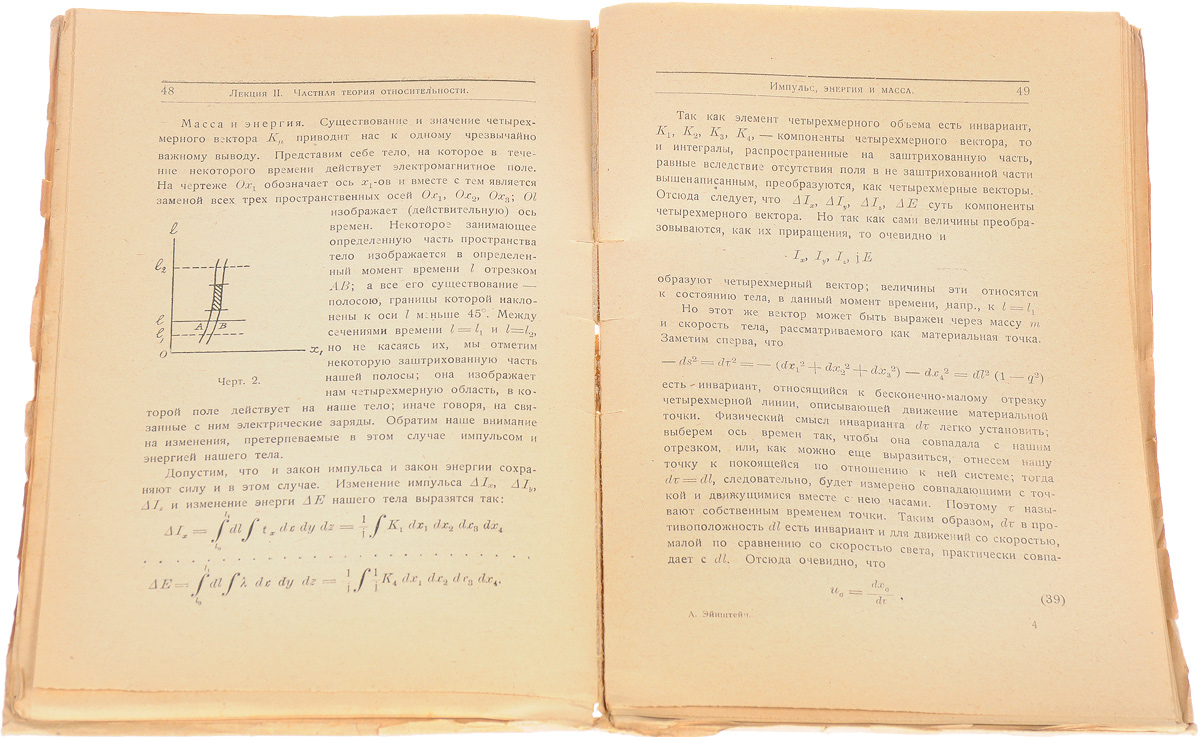 48 Лекция II. Частная теория относительности.
Масса и энергия. Существование и значение четырех-
мерного вектора Kμ приводит нас к одному чрезвычайно
важному выводу. Представим себе тело, на которое в тече-
ние некоторого времени действует электромагнитное поле.
На чертеже Ox₁ обозначает ось x₁-ов и вместе с тем является
заменой всех трех пространственных осей Ox₁, Ox₂, Ox₃; Ol
изображает (действительную) ось
времен. Некоторое занимающее
определенную часть пространства
тело изображается в определен-
ный момент времени l отрезком
AB; а все его существование —
полосою, границы которой накло-
нены к оси l меньше 45°. Между
сечениями времени l = l₁ и l=l₂,
но не касаясь их, мы отметим
некоторую заштрихованную часть
нашей полосы; она изображает
нам четырехмерную область, в ко-
l
l₂
l
l₁
A B
O
x₁
Черт. 2.
торой поле действует на наше тело; иначе говоря, на свя-
занные с ним электрические заряды. Обратим наше внимание
на изменения, претерпеваемые в этом случае импульсом и
энергией нашего тела.
Допустим, что и закон импульса и закон энергии сохра-
няют силу и в этом случае. Изменение импульса ΔIₓ, ΔIᵧ,
ΔI_z и изменение энерги ΔE нашего тела выразятся так:
ΔIₓ = ∫ dl ∫ 𝔨ₓ dx dy dz = 1/j ∫ K₁ dx₁ dx₂ dx₃ dx₄
ΔE = ∫ dl ∫ λ dx dy dz = 1/j ∫ 1/j K₄ dx₁ dx₂ dx₃ dx₄.
Импульс, энергия и масса. 49
Так как элемент четырехмерного объема есть инвариант,
K₁, K₂, K₃, K₄, — компоненты четырехмерного вектора, то
и интегралы, распространенные на заштрихованную часть,
равные вследствие отсутствия поля в не заштрихованной части
вышенаписанным, преобразуются, как четырехмерные векторы.
Отсюда следует, что ΔIₓ, ΔIᵧ, ΔI_z, ΔE суть компоненты
четырехмерного вектора. Но так как сами величины преобра-
зовываются, как их приращения, то очевидно и
Iₓ, Iᵧ, I_z, jE
образуют четырехмерный вектор; величины эти относятся
к состоянию тела, в данный момент времени, напр., к l = l₁
Но этот же вектор может быть выражен через массу m
и скорость тела, рассматриваемого как материальная точка.
Заметим сперва, что
— ds² = dτ² = — (dx₁² + dx₂² + dx₃²) — dx₄² = dl² (1 — q²)
есть инвариант, относящийся к бесконечно-малому отрезку
четырехмерной линии, описывающей движение материальной
точки. Физический смысл инварианта dτ легко установить;
выберем ось времен так, чтобы она совпадала с нашим
отрезком, или, как можно еще выразиться, отнесем нашу
точку к покоящейся по отношению к ней системе; тогда
dτ = dl, следовательно, будет измерено совпадающими с точ-
кой и движущимися вместе с нею часами. Поэтому τ назы-
вают собственным временем точки. Таким образом, dτ в про-
тивоположность dl есть инвариант и для движений со скоростью,
малой по сравнению со скоростью света, практически совпа-
дает с dl. Отсюда очевидно, что
u_σ = dx_σ/dτ , (39)
А. Эйнштейн.
4